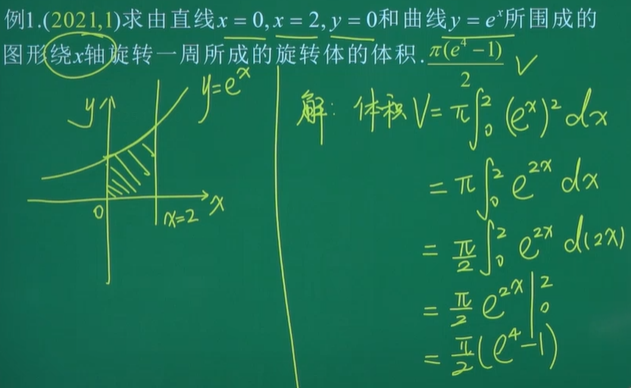 例1.(2021,1)求由直线x = 0, x = 2, y = 0和曲线y = eˣ所围成的
图形绕x轴旋转一周所成的旋转体的体积. π(e⁴-1)/2 √
y
y=eˣ
0
x=2
x
解: 体积V=π∫₀²(eˣ)²dx
=π∫₀²e²ˣdx
=π/2∫₀²e²ˣd(2x)
=π/2 e²ˣ|₀²
=π/2(e⁴-1)